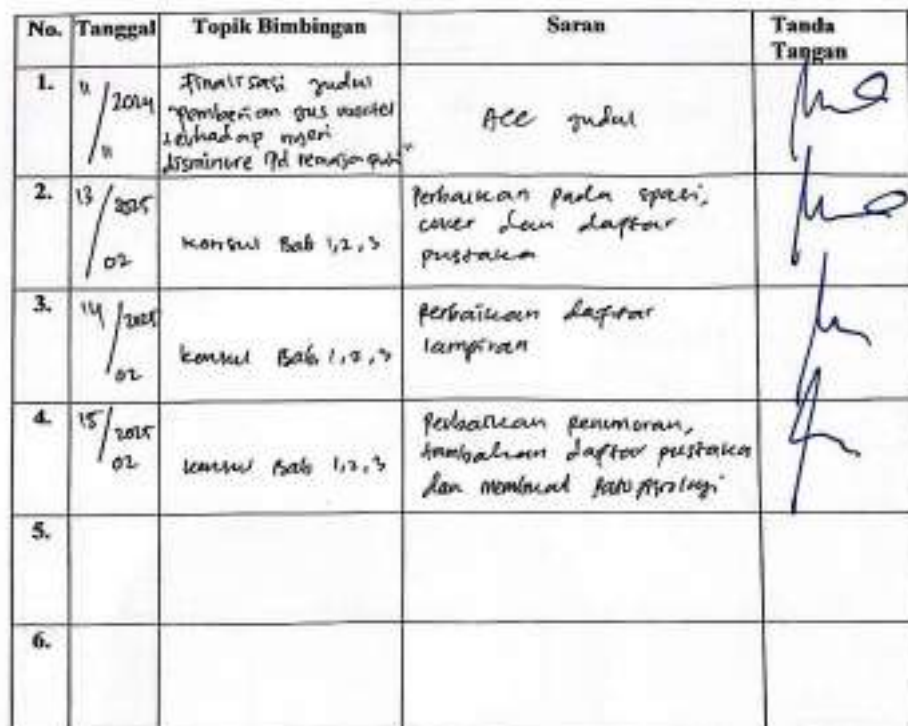 No. Tanggal Topik Bimbingan Saran Tanda Tangan
1. 11/11 2024
Finalisasi judul
"pemberian gus
terhadap nyeri
disminore pd remaja putri"
Acc judul
2. 13/02 2025
konsul Bab 1,2,3
Perbaikan pada spasi,
cover dan daftar
pustaka
3. 14/02 2025
konsul Bab 1,2,3
Perbaikan daftar
lampiran
4. 15/02 2025
konsul Bab 1,2,3
Perbaikan penomoran,
tambahan daftar pustaka
dan membuat patofisiologi
5.
6.